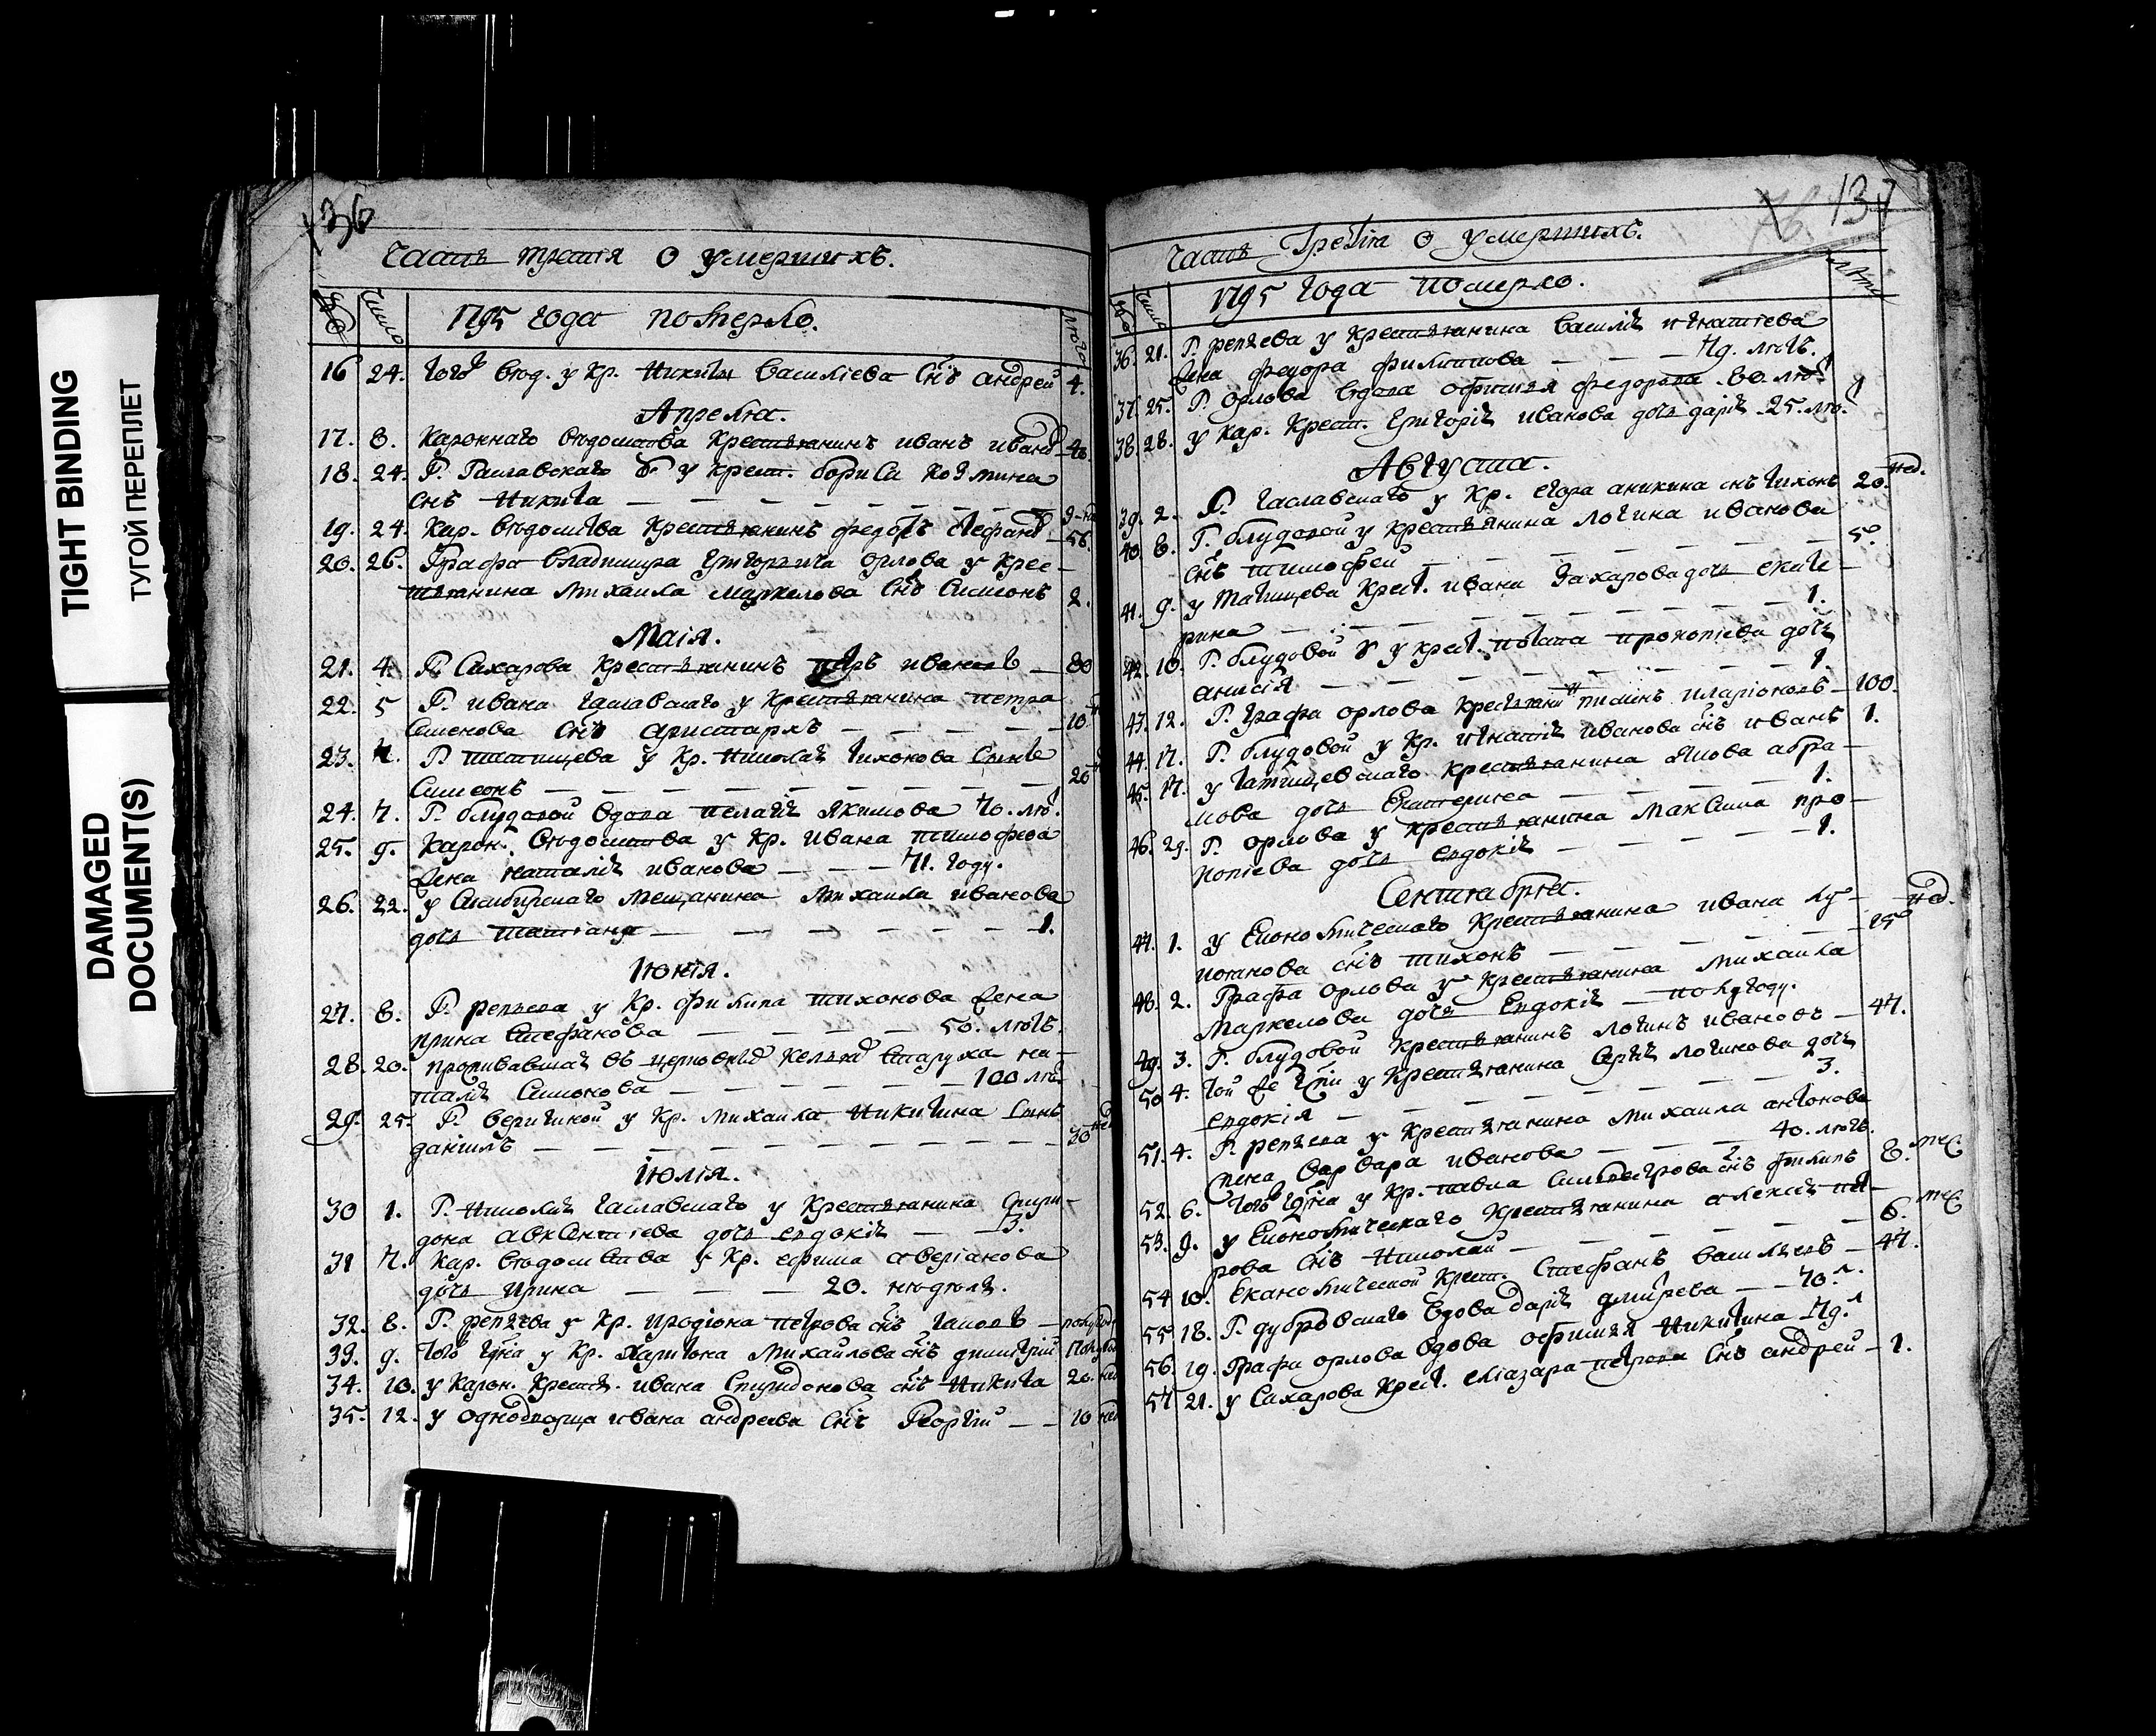 TIGHT BINDING
ТУГОЙ ПЕРЕПЛЕТ
DAMAGED
DOCUMENT(S)
136
Часть третія о умершихъ.
число
1795 года померло.
лѣта
16 24. того вѣд. у кр. никиты василіева снъ андрей 4.
Апреля.
17. 8. Казеннаго вѣдомства крестьянинъ иванъ
18. 24. Г. у крест. бориса козмина
снъ никита — — —
19. 24. Каз. вѣдомства крестьянинъ федоръ стефановъ 56.
20. 26. Графа владимира григорьича орлова у кре-
стьянина михаила маркелова снъ симионъ 2.
Маія.
21. 4. Г. Сахарова крестьянинъ петръ ивановъ — 80
22. 5 Г. ивана у крестьянина петра
семенова снъ аристархъ — — — 10
23. 7. Г. татищева у кр. николая тихонова сынъ
симеонъ — — — 20
24. 7. Г. блудовой вдова пелагія якимова 70. лѣ.
25. 9. Казен. вѣдомства у кр. ивана тимофеева
жена наталія иванова — — 71. году.
26. 22. у симбирскаго мещанина михаила иванова
дочь татіана — — — 1.
Іюнія.
27. 8. Г. репьева у кр. филипа тихонова жена
ирина стефанова — — — 50. лѣтъ.
28. 20. проживавшая въ церковной кельѣ старуха на-
талія симонова — — — 100 лѣ.
29. 25. Г. веригиной у кр. михаила никитина сынъ
даніилъ — — — 20 нед
Іюлія.
30 1. Г. николая чаславскаго у крестьянина спири-
дона авксентіева дочь евдокія — — 3.
31 7. Каз. вѣдомства у кр. ефима аверіанова
дочь ирина — — — 20. недѣль.
32. 8. Г. репьева у кр. иродіона петрова снъ —
33. 9. того гдна у кр. харитона михаилова снъ димитрій
34. 10. у казен. крест. ивана спиридонова снъ никита 20. нед
35. 12. у однодворца ивана андреева снъ Георгій — — 10 нед
76 137
Часть Третіа о умершихъ.
число
1795 года померло.
лѣта
36. 21. Г. репьева у крестьянина василія игнатіева
жена федора филипова — — — 79. лѣтъ.
37. 25. Г. орлова вдова офимія федорова 80. лѣ.
38. 28. у каз. крест. григорія иванова дочь дарія 25. лѣ.
Августа.
39. 2. Г. чаславскаго у кр. егора аникина снъ тихонъ 20. нед.
40. 8. Г. блудовой у крестьянина логина иванова
снъ тимофей — — — 5.
41. 9. у татищева крест. ивана захарова дочь екате-
рина — — — 1.
42. 10. Г. блудовой у крест. потапа прокопіева дочь
анисія — — — 1.
43. 12. Г. графа орлова крестьянинъ пименъ иларіоновъ — 100.
44. 17. Г. блудовой у кр. игнатія иванова снъ иванъ 1.
45. 17. у татищевскаго крестьянина якова абра-
мова дочь екатерина — — — 1.
46. 29. Г. орлова у крестьянина максима про-
копіева дочь евдокія — — — 1.
Сентября.
47. 1. у економическаго крестьянина ивана лу-
потапова снъ тихонъ — — — 15 нед.
48. 2. Графа орлова у крестьянина михаила
маркелова дочь евдокія — полугоду.
49. 3. Г. блудовой крестьянинъ логинъ ивановъ — 47.
50 4. той же гжи у крестьянина сергія логинова дочь
евдокія — — — 3.
51. 4. Г. репьева у крестьянина михаила антонова
жена варвара иванова — — — 40. лѣтъ.
52. 6. того гдна у кр. павла силвестрова снъ филипъ 8. мес
53. 9. у економическаго крестьянина алексія пет-
рова снъ николай — — — 6. мес
54 10. Економической крест. стефанъ васильевъ — 47.
55. 18. Г. дубровскаго вдова дарія дмитрева — — 70. л
56. 19. Графа орлова вдова офимія никитина 79. л
57 21. у сахарова крест. еліазара петрова снъ андрей — 1.